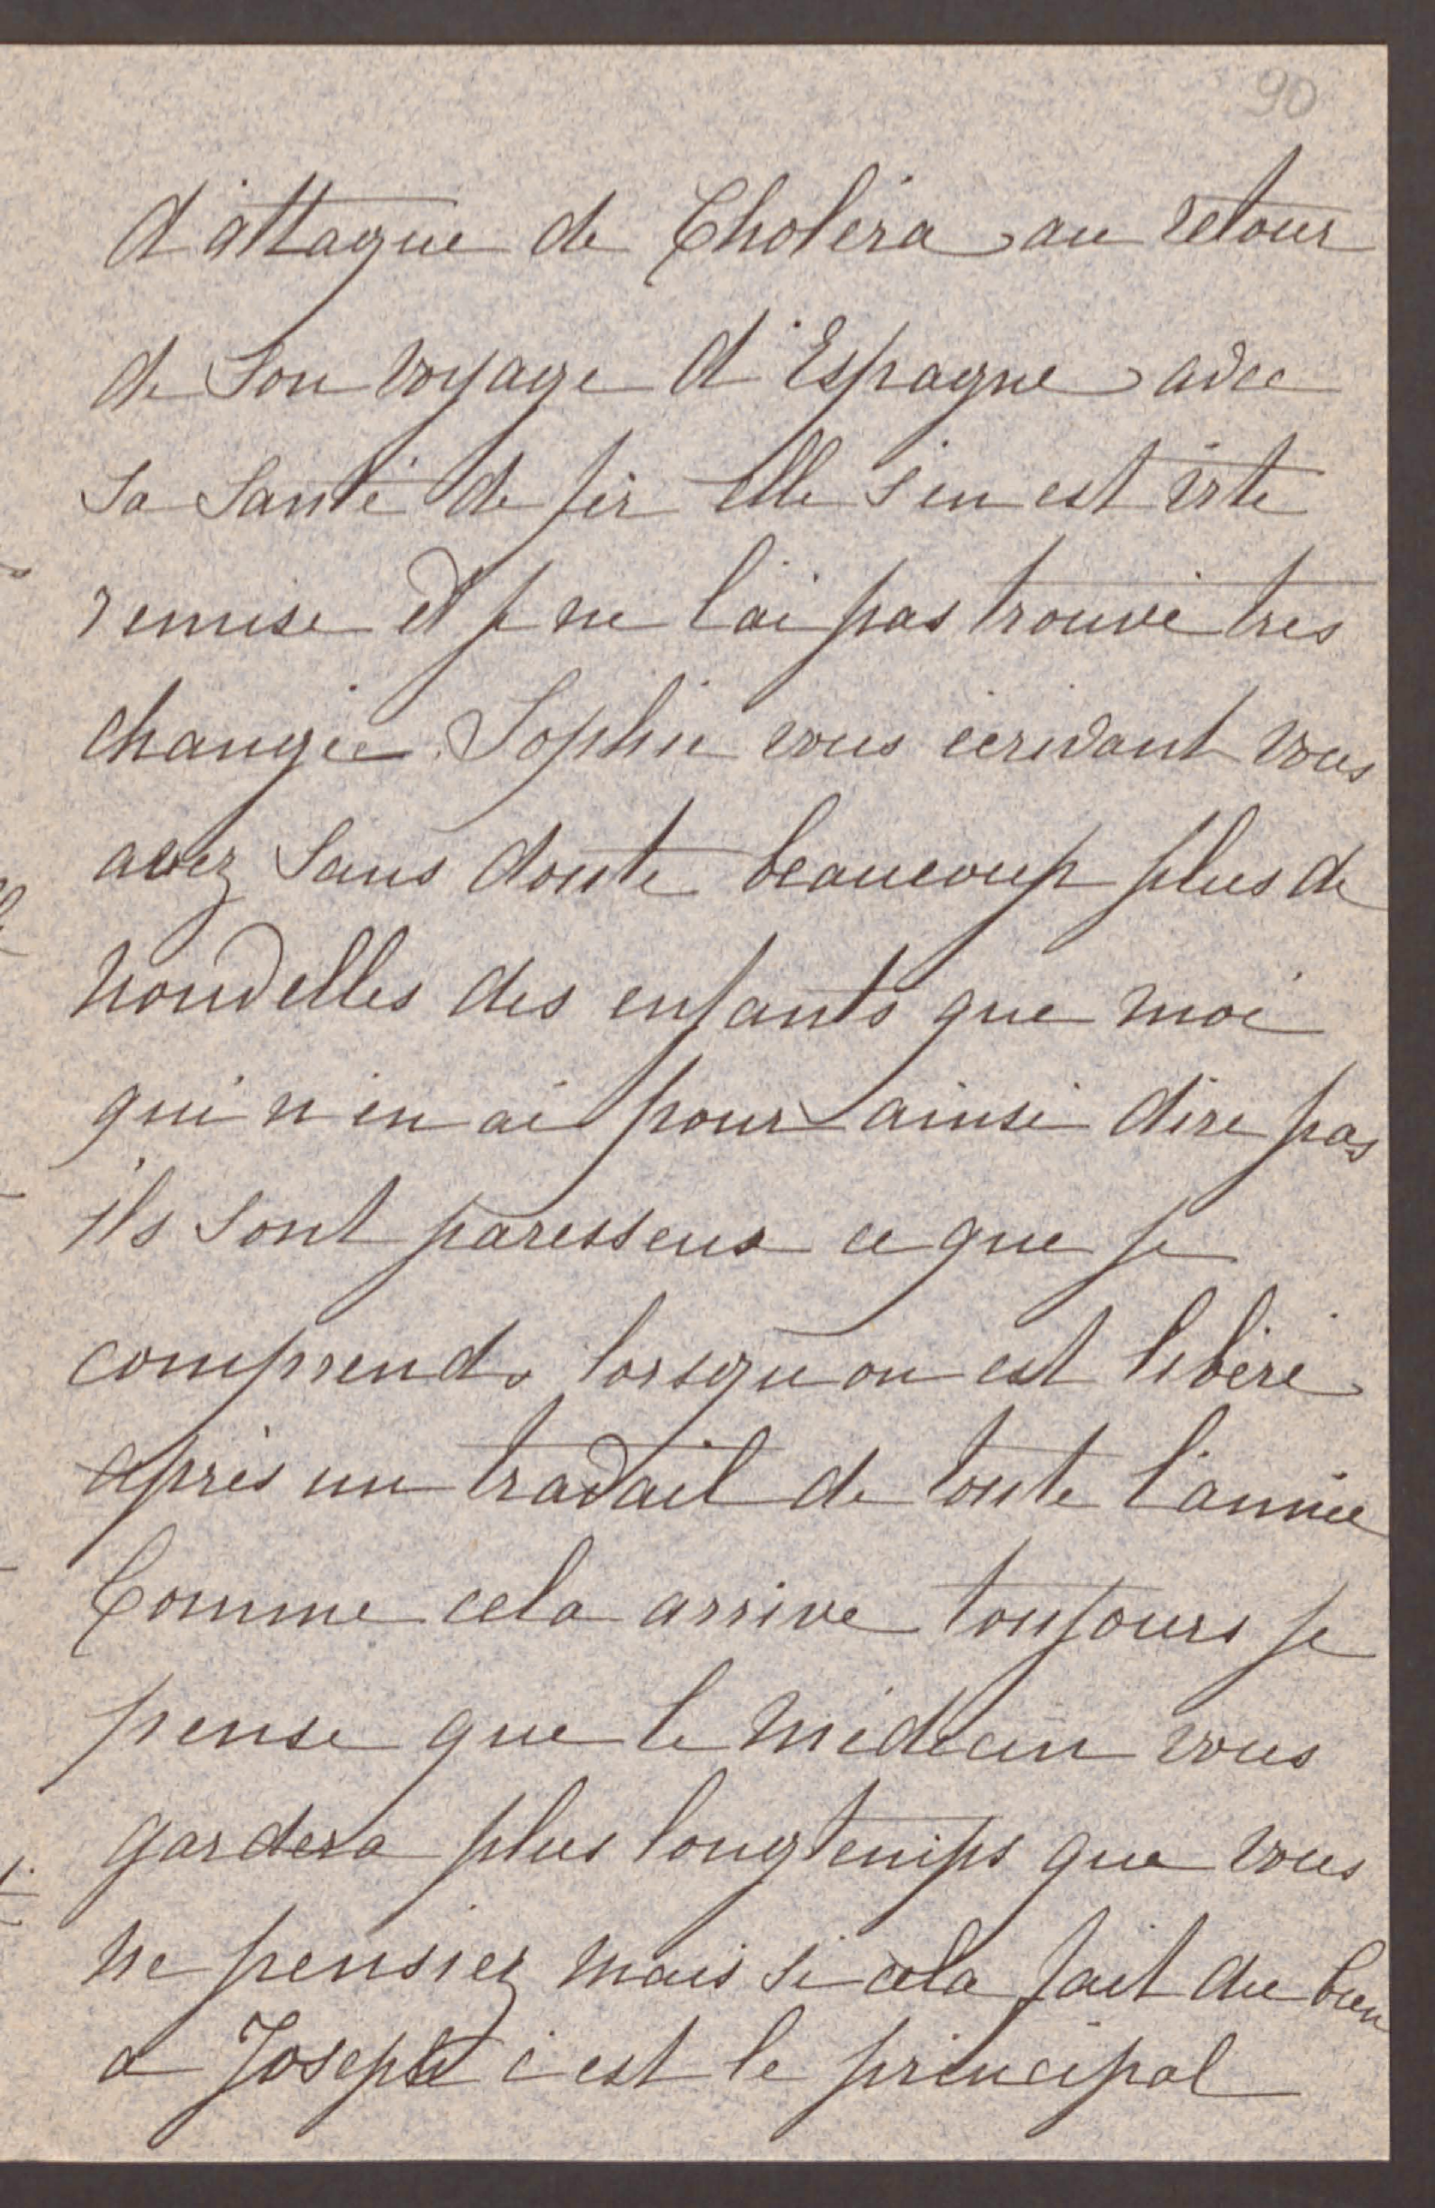 90
d'attaque de Choléra au retour
de Son voyage d'Espagne avec
Sa Santé de fer elle s'en est vite
remise et je ne l'ai pas trouvé très
changée. Sophie vous écrivant vous
avez Sans doute beaucoup plus de
nouvelles des enfants que moi
qui n'en ai pour ainsi dire pas
ils Sont paresseux ce que je
comprends lorsqu'on est libéré
après un travail de toute l'année
Comme cela arrive toujours je
pense que le médecin vous
gardera plus longtemps que vous
ne pensiez mais si cela fait du bien
a Joseph c'est le principal